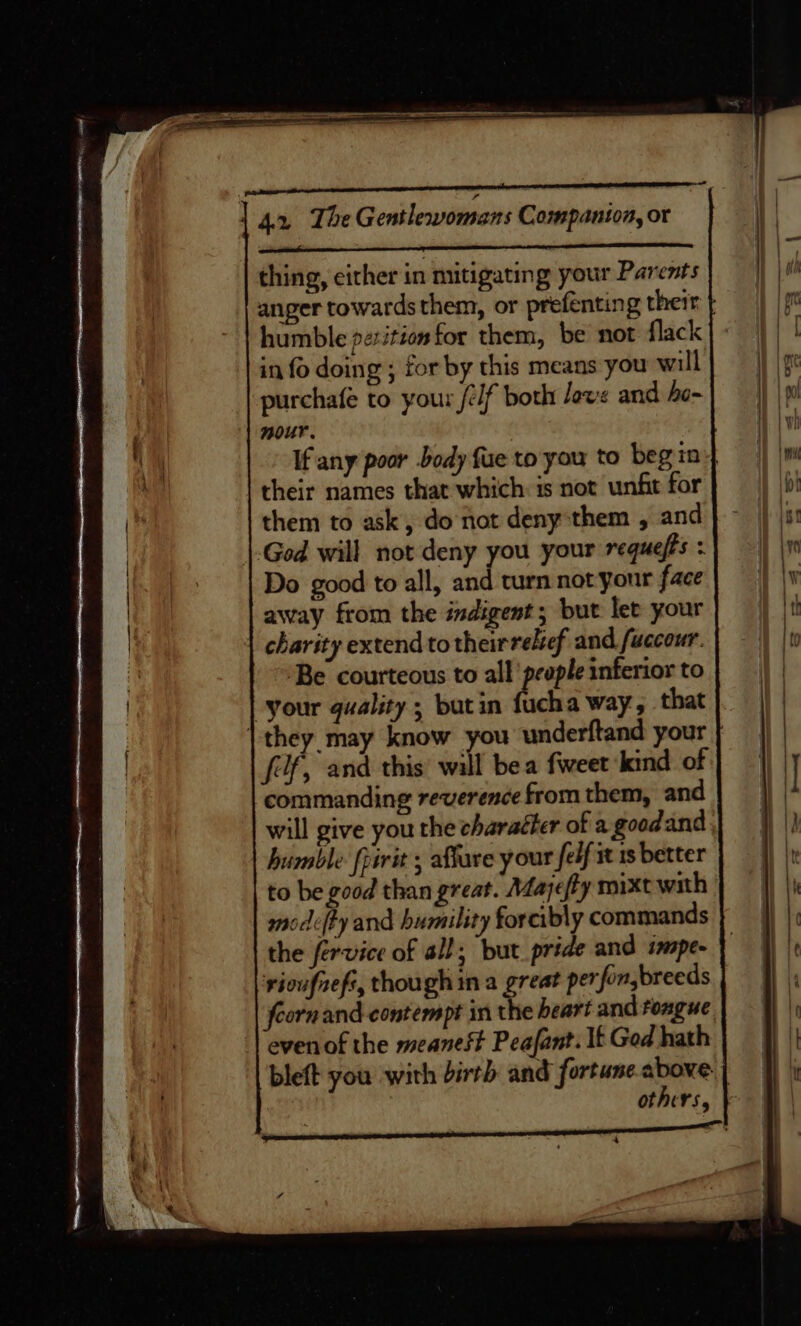 42 The Gentlewomans Companion, or
thing, either in mitigating your Parents
anger towards them, or preſenting their
humble petition for them, be not ſlack
in ſo doing ; for by this means you will
purchaſe to your ſelf both love and ho-
nour.
If any poor body ſue to you to beg in
their names that which is not unfit for
them to ask , do not deny them , and
God will not deny you your requeſts :
Do good to all, and turn not your face
away from the indigent ; but let your
charity extend to their relief and ſuccour.
Be courteous to all people inferior to
your quality ; but in ſuch a way , that
they may know you underſtand your
ſelf, and this will be a ſweet kind of
commanding reverence from them, and
will give you the character of a good and
humble ſpirit ; aſſure your ſelf it is better
to be good than great. Majeſty mixt with
modeſty and humility forcibly commands
the ſervice of all ; but pride and impe-
riouſneſs, though in a great perſon, breeds
ſcorn and contempt in the heart and tongue
even of the meaneſt Peaſant. If God hath
bleſt you with birth and fortune above
others,